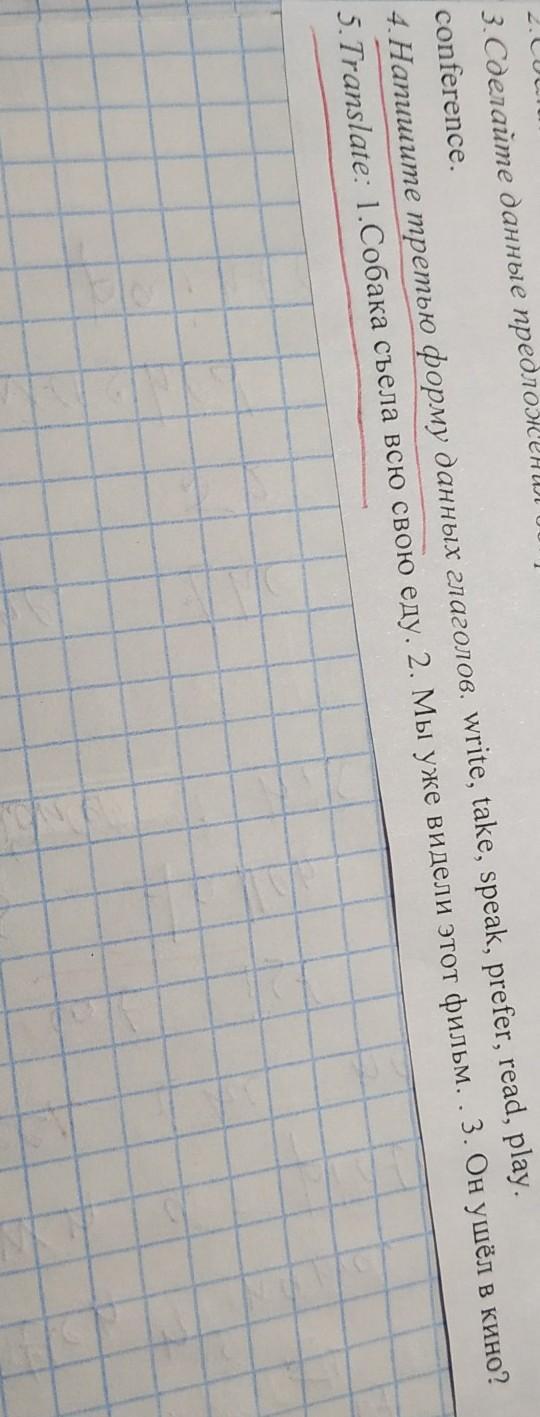 3. Сделайте данные предложения
conference.
4. Напишите третью форму данных глаголов. write, take, speak, prefer, read, play.
5. Translate: 1.Собака съела всю свою еду. 2. Мы уже видели этот фильм. . 3. Он ушёл в кино?